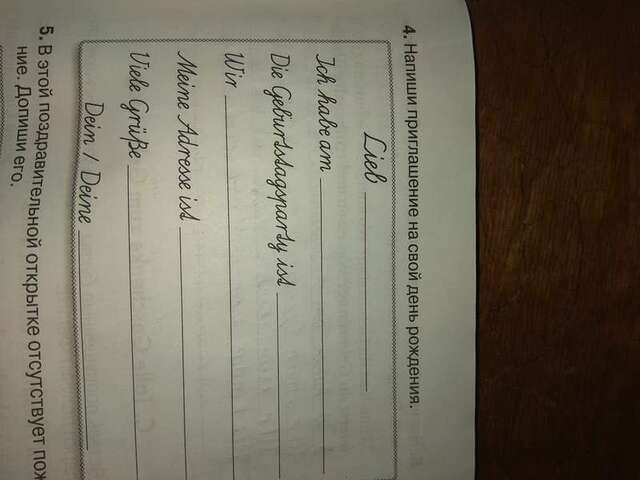 4. Напиши приглашение на свой день рождения.
Lieb
Ich habe am
Die Geburtstagsparty ist
Wir
Meine Adresse ist
Viele Grüße
Dein / Deine
5. В этой поздравительной открытке отсутствует
ние. Допиши его.